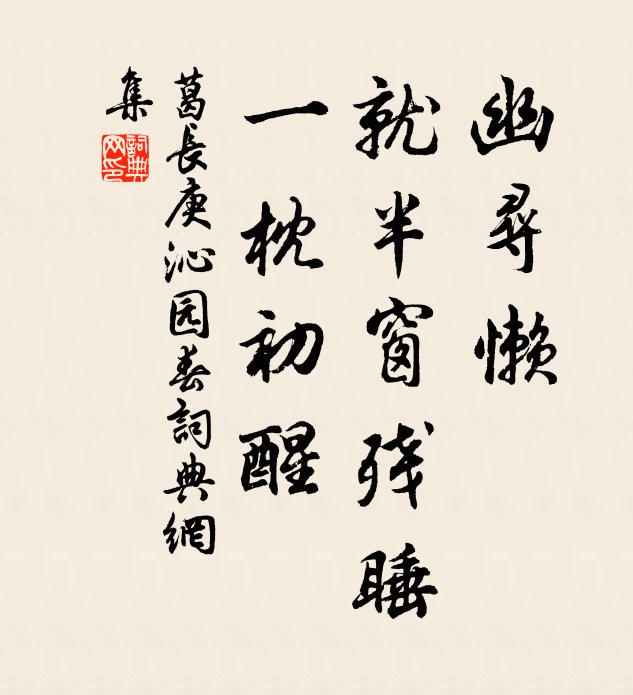 幽尋懒
就半窗残睡
一枕初醒
葛長庚沁园春詞典網
集
詞典网印